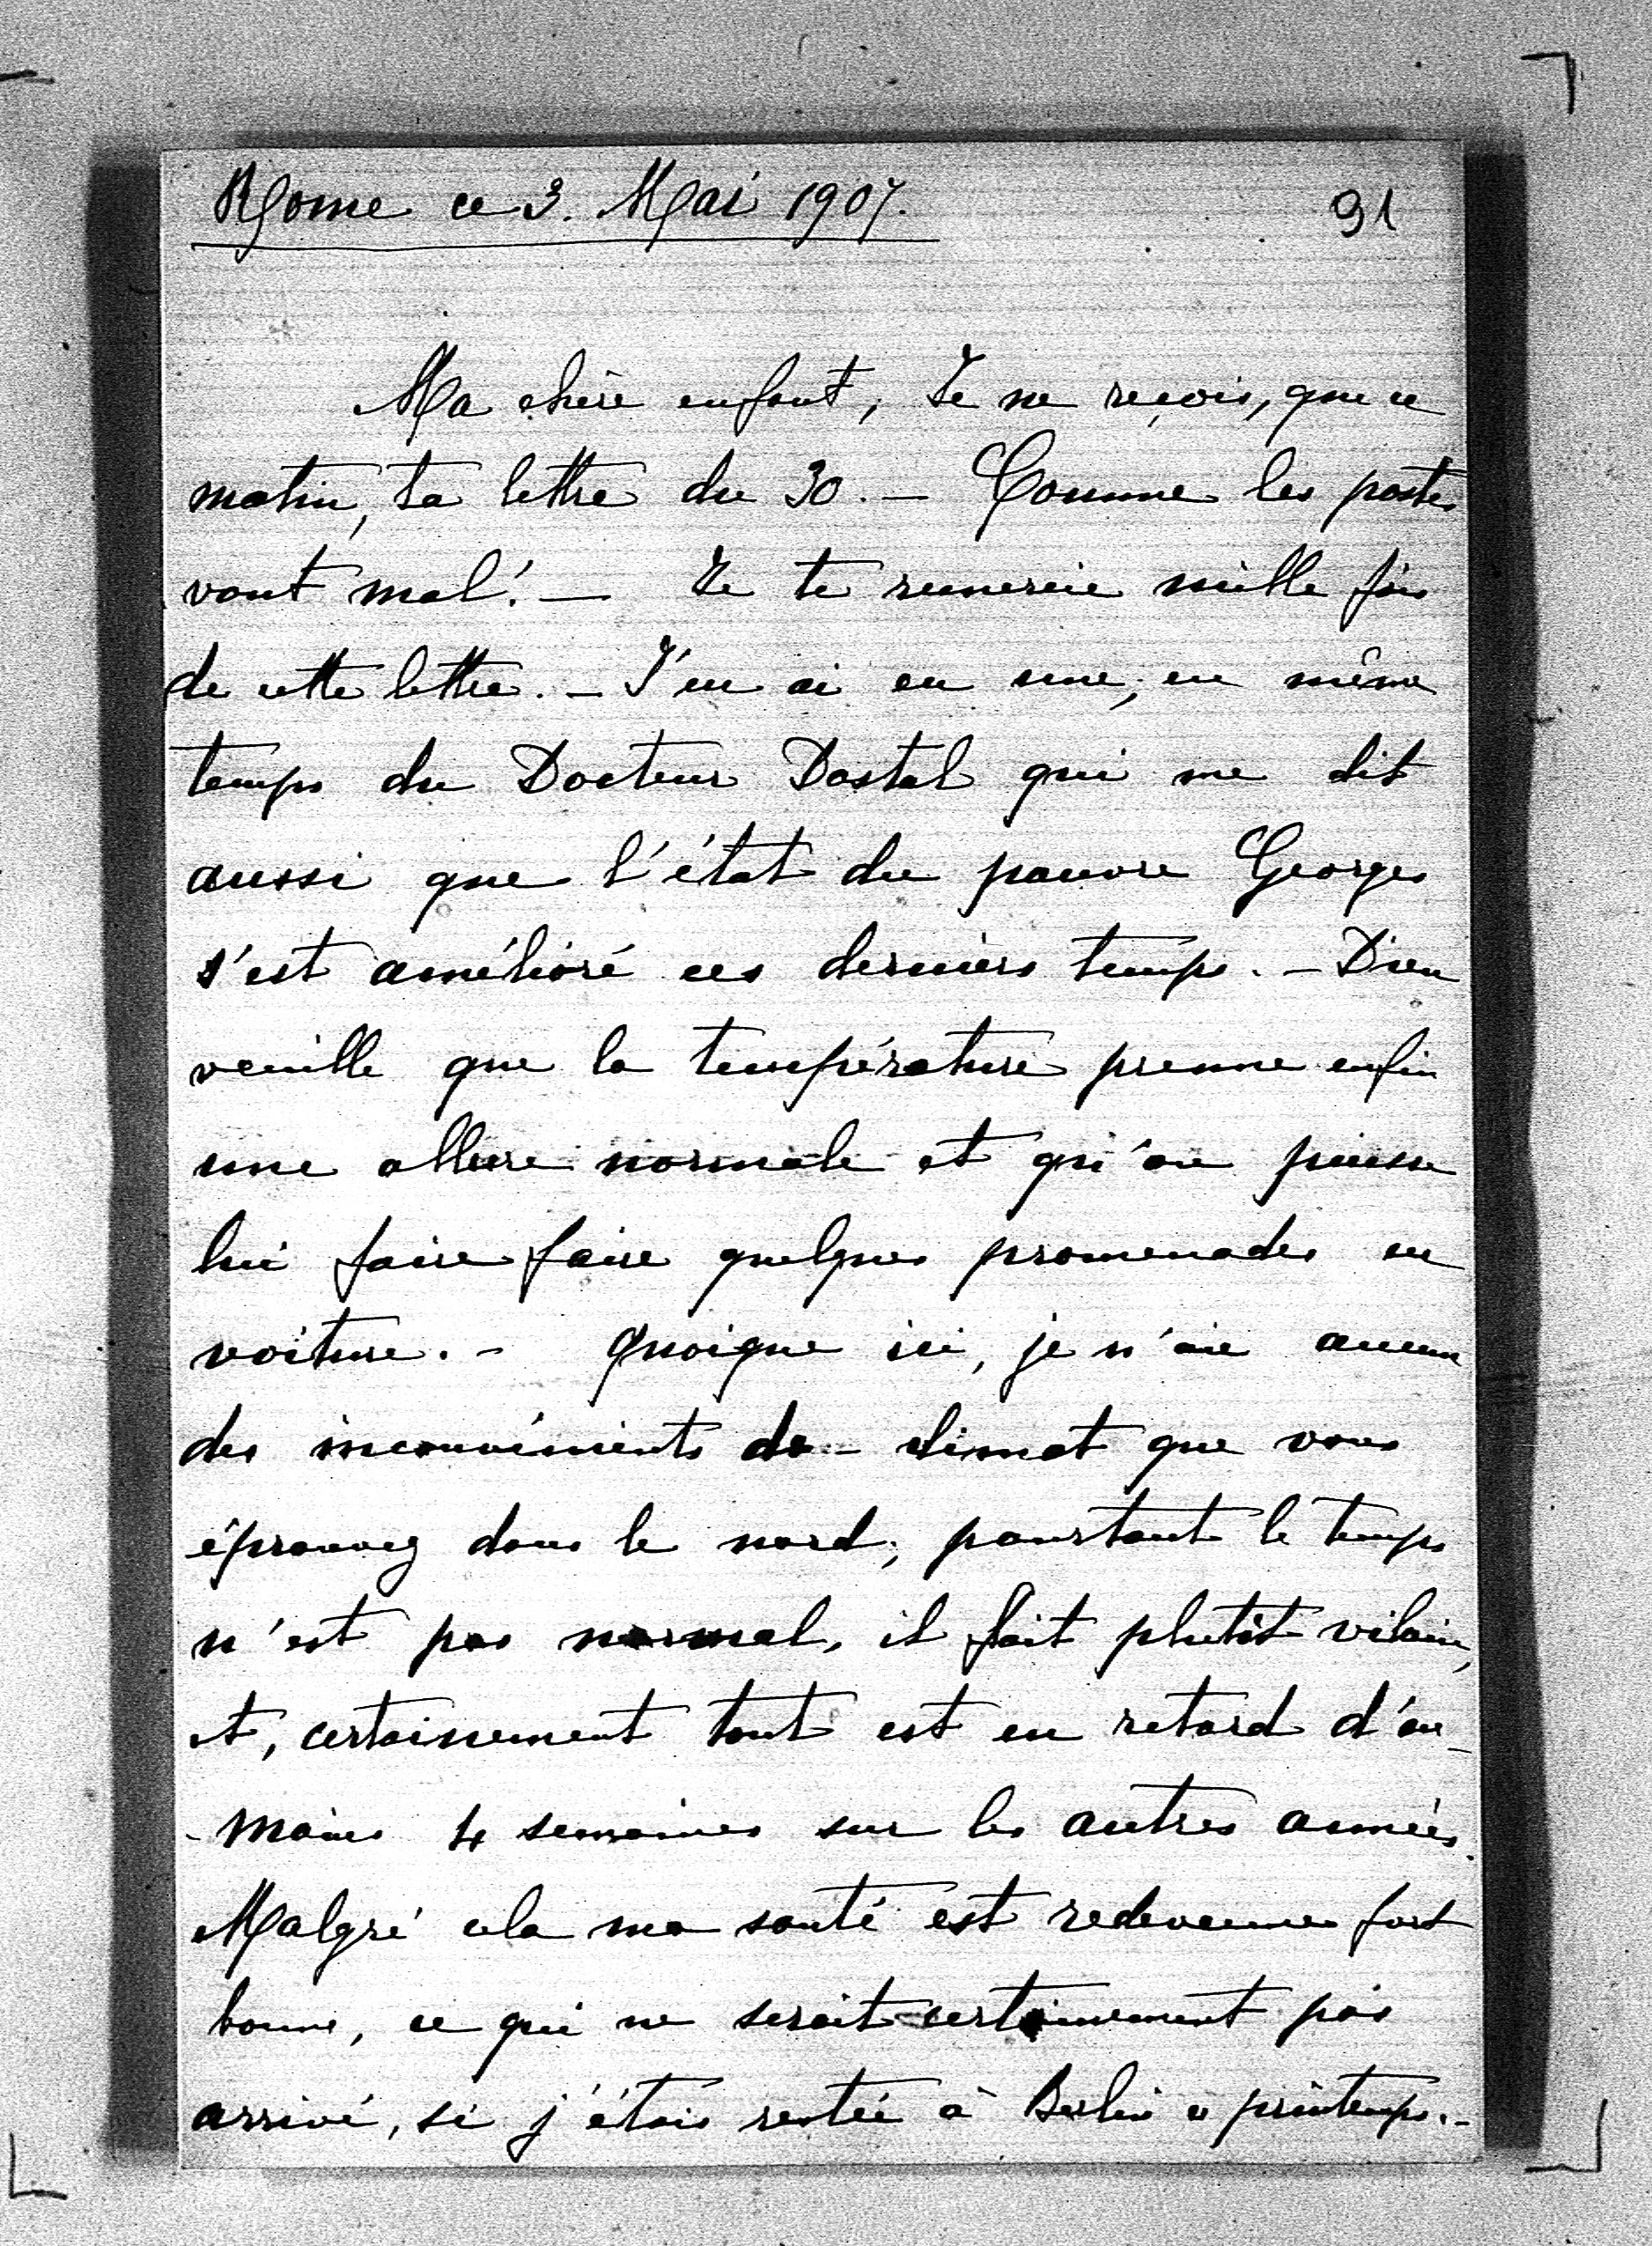 Rome ce 3. Mai 1907.
91
Ma chère enfant, Je ne reçois, que ce
matin, ta lettre du 30. — Comme les postes
vont mal! — Je te remercie mille fois
de cette lettre. — J'en ai eu une, en même
temps du Docteur Dostal qui me dit
aussi que l'état du pauvre Georges
s'est amélioré ces derniers temps. — Dieu
veuille que la température prenne enfin
une allure normale et qu'on puisse
lui faire faire quelques promenades en
voiture. – Quoique ici, je n'aie aucun
des inconvénients de climat que vous
éprouvez dans le nord; pourtant le temps
n'est pas normal, il fait plutôt vilain,
et, certainement tout est en retard d'au-
-moins 4 semaines sur les autres années.
Malgré cela ma santé est redevenue fort
bonne, ce qui ne serait certainement pas
arrivé, si j'étais restée à Berlin ce printemps. –